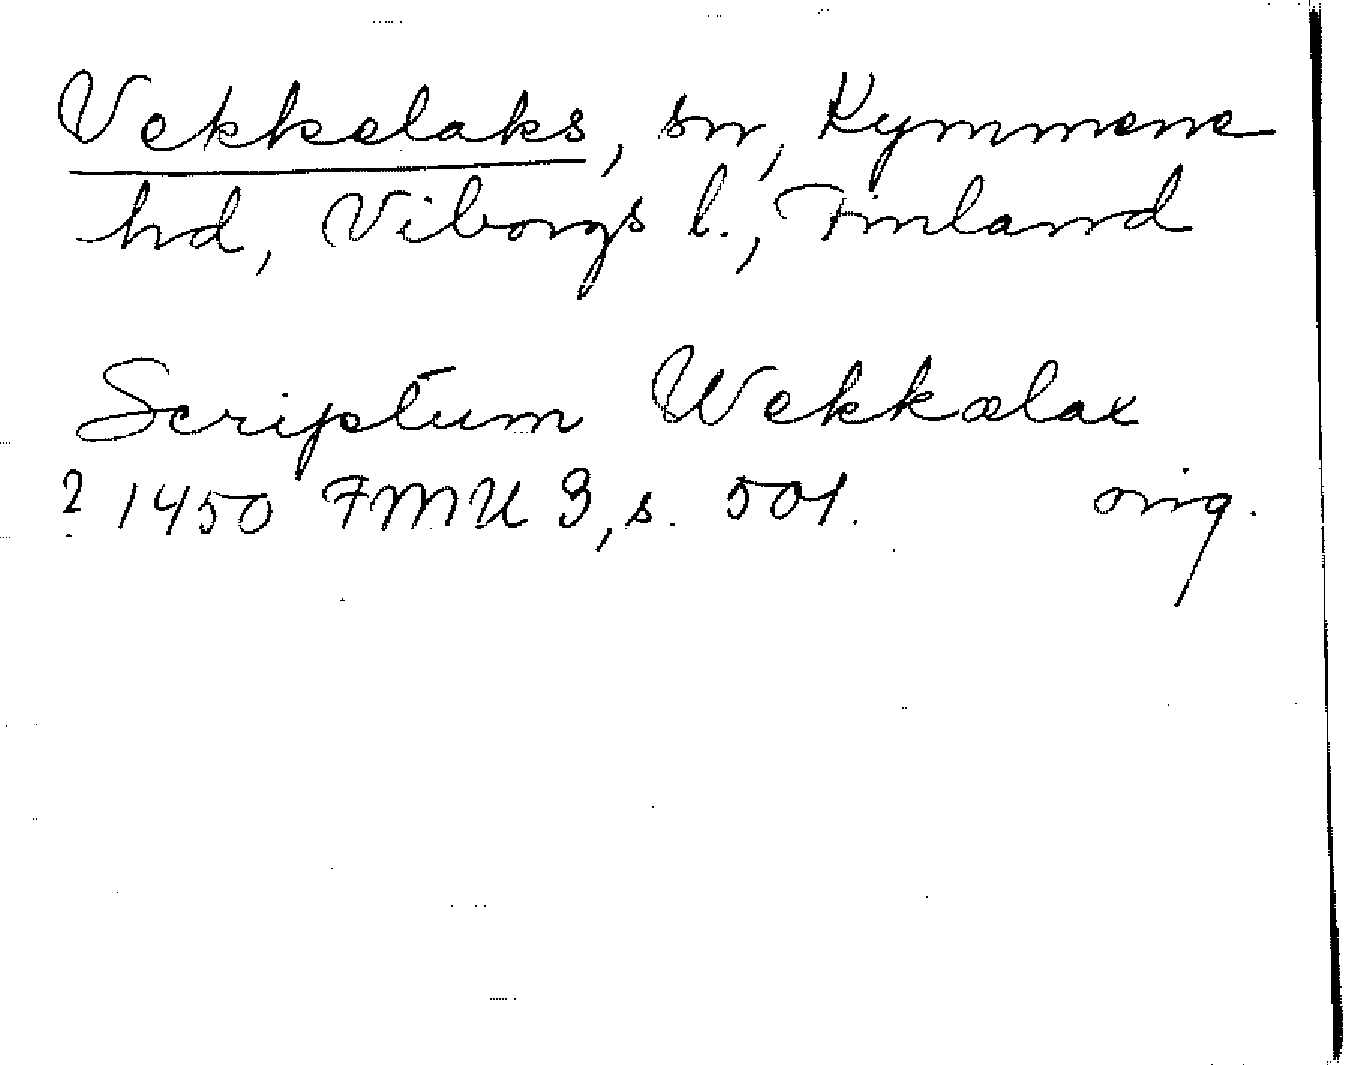 Vekkelaks, sn, Kymmene
hd, Viborgs l., Finland
Scriptum Wekkælax
? 1450 FMU 3, s. 501. orig.